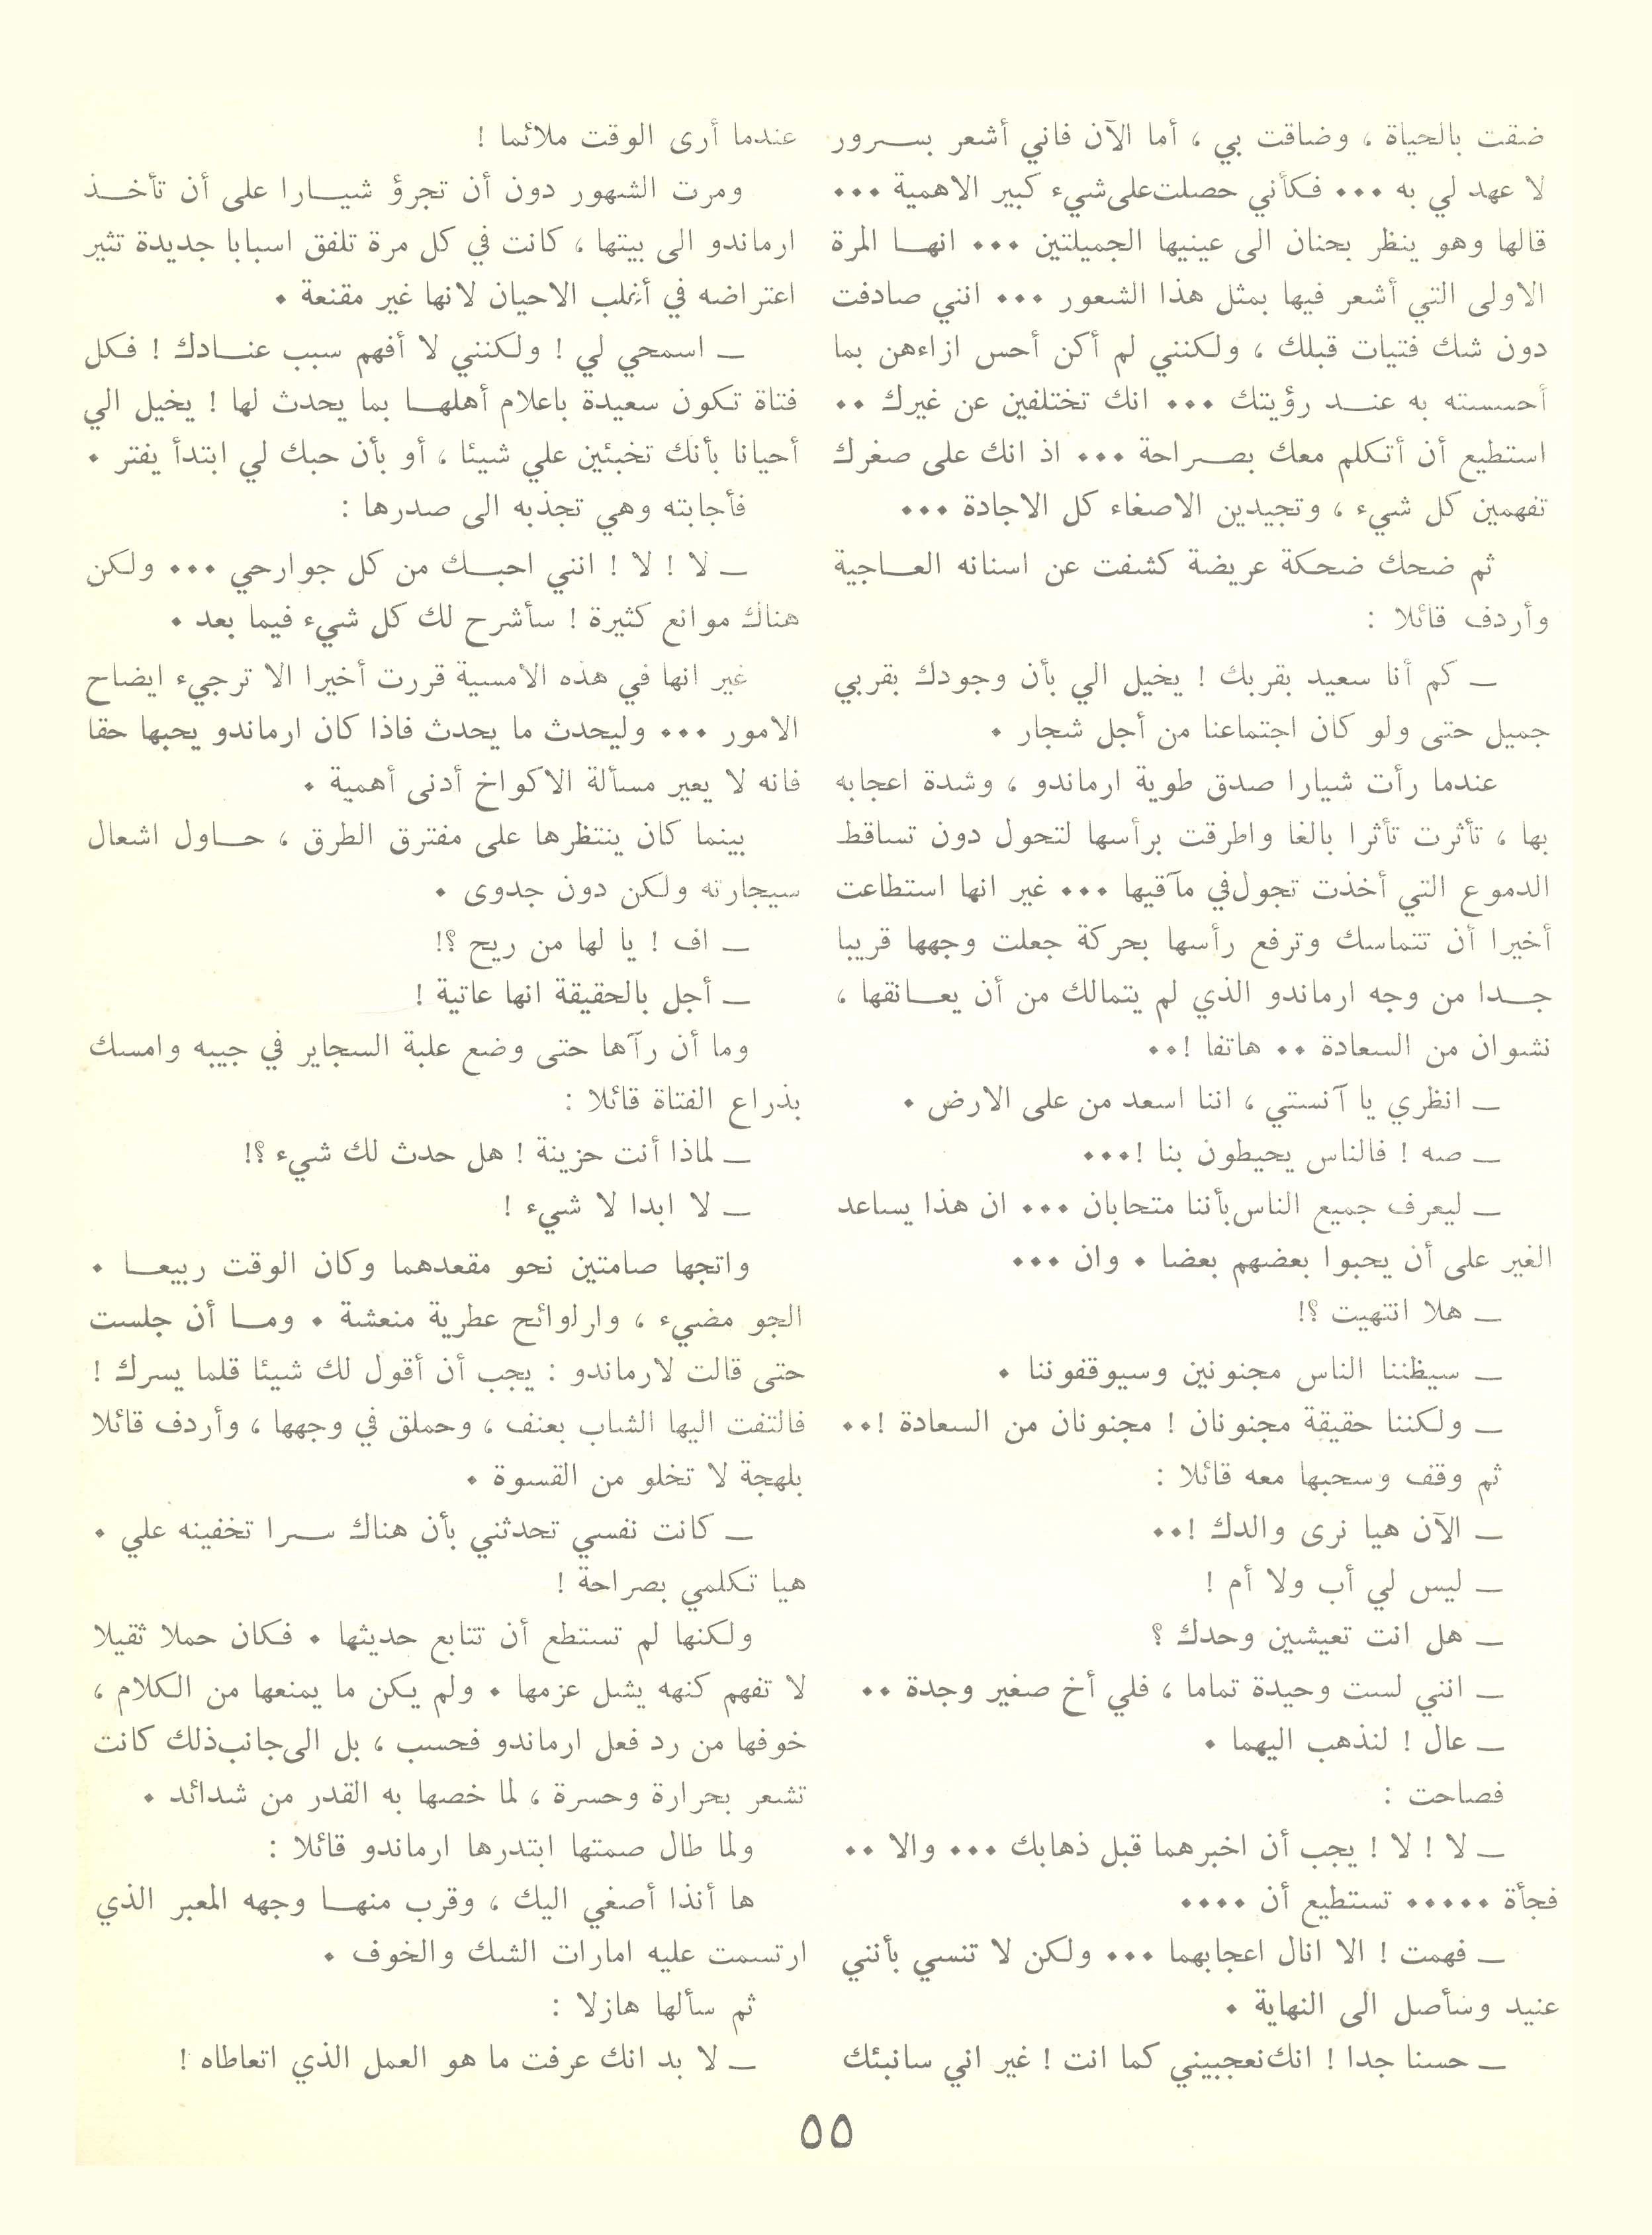 ضقت بالحياة ، وضاقت بي ، أما الآن فاني أشعر بسرور
لا عهد لي به ٠٠٠ فكأني حصلت على شيء كبير الاهمية ٠٠٠
قالها وهو ينظر بحنان الى عينيها الجميلتين ٠٠٠ انها المرة
الاولى التي أشعر فيها بمثل هذا الشعور ٠٠٠ انني صادفت
دون شك فتيات قبلك ، ولكنني لم أكن أحس ازاءهن بما
أحسسته به عند رؤيتك ٠٠٠ انك تختلفين عن غيرك ٠٠
استطيع أن أتكلم معك بصراحة ٠٠٠ اذ انك على صغرك
تفهمين كل شيء ، وتجيدين الاصغاء كل الاجادة ٠٠٠
ثم ضحك ضحكة عريضة كشفت عن اسنانه العاجية
وأردف قائلا :
ــ كم أنا سعيد بقربك ! يخيل الي بأن وجودك بقربي
جميل حتى ولو كان اجتماعنا من أجل شجار ٠
عندما رأت شيارا صدق طوية ارماندو ، وشدة اعجابه
بها ، تأثرت تأثرا بالغا واطرقت برأسها لتحول دون تساقط
الدموع التي أخذت تجول في مآقيها ٠٠٠ غير انها استطاعت
أخيرا أن تتماسك وترفع رأسها بحركة جعلت وجهها قريبا
جدا من وجه ارماندو الذي لم يتمالك من أن يعانقها ،
نشوان من السعادة ٠٠ هاتفا !٠٠
ــ انظري يا آنستي ، اننا اسعد من على الارض ٠
ــ صه ! فالناس يحيطون بنا !٠٠٠
ــ ليعرف جميع الناس بأننا متحابان ٠٠٠ ان هذا يساعد
الغير على أن يحبوا بعضهم بعضا ٠ وان ٠٠٠
ــ هلا انتهيت ؟!
ــ سيظننا الناس مجنونين وسيوقفوننا ٠
ــ ولكننا حقيقة مجنونان ! مجنونان من السعادة !٠٠
ثم وقف وسحبها معه قائلا :
ــ الآن هيا نرى والدك !٠٠
ــ ليس لي أب ولا أم !
ــ هل انت تعيشين وحدك ؟
ــ انني لست وحيدة تماما ، فلي أخ صغير وجدة ٠٠
ــ عال ! لنذهب اليهما ٠
فصاحت :
ــ لا ! لا ! يجب أن اخبرهما قبل ذهابك ٠٠٠ والا ٠٠
فجأة ٠٠٠٠٠ تستطيع أن ٠٠٠٠
ــ فهمت ! الا انال اعجابهما ٠٠٠ ولكن لا تنسي بأنني
عنيد وسأصل الى النهاية ٠
ــ حسنا جدا ! انك نعجبيني كما انت ! غير اني سانبئك
عندما أرى الوقت ملائما !
ومرت الشهور دون أن تجرؤ شيارا على أن تأخذ
ارماندو الى بيتها ، كانت في كل مرة تلفق اسبابا جديدة تثير
اعتراضه في أغلب الاحيان لانها غير مقنعة ٠
ــ اسمحي لي ! ولكنني لا أفهم سبب عنادك ! فكل
فتاة تكون سعيدة باعلام أهلها بما يحدث لها ! يخيل الي
أحيانا بأنك تخبئين علي شيئا ، أو بأن حبك لي ابتدأ يفتر ٠
فأجابته وهي تجذبه الى صدرها :
ــ لا ! لا ! انني احبك من كل جوارحي ٠٠٠ ولكن
هناك موانع كثيرة ! سأشرح لك كل شيء فيما بعد ٠
غير انها في هذه الامسية قررت أخيرا الا ترجيء ايضاح
الامور ٠٠٠ وليحدث ما يحدث فاذا كان ارماندو يحبها حقا
فانه لا يعير مسألة الاكواخ أدنى أهمية ٠
بينما كان ينتظرها على مفترق الطرق ، حاول اشعال
سيجارته ولكن دون جدوى ٠
ــ اف ! يا لها من ريح ؟!
ــ أجل بالحقيقة انها عاتية !
وما أن رآها حتى وضع علبة السجاير في جيبه وامسك
بذراع الفتاة قائلا :
ــ لماذا أنت حزينة ! هل حدث لك شيء ؟!
ــ لا ابدا لا شيء !
واتجها صامتين نحو مقعدهما وكان الوقت ربيعا ٠
الجو مضيء ، وارلوائح عطرية منعشة ٠ وما أن جلست
حتى قالت لارماندو : يجب أن أقول لك شيئا قلما يسرك !
فالتفت اليها الشاب بعنف ، وحملق في وجهها ، وأردف قائلا
بلهجة لا تخلو من القسوة ٠
ــ كانت نفسي تحدثني بأن هناك سرا تخفينه علي ٠
هيا تكلمي بصراحة !
ولكنها لم تستطع أن تتابع حديثها ٠ فكان حملا ثقيلا
لا تفهم كنهه يشل عزمها ٠ ولم يكن ما يمنعها من الكلام ،
خوفها من رد فعل ارماندو فحسب ، بل الى جانب ذلك كانت
تشعر بحرارة وحسرة ، لما خصها به القدر من شدائد ٠
ولما طال صمتها ابتدرها ارماندو قائلا :
ها أنذا أصغي اليك ، وقرب منها وجهه المعبر الذي
ارتسمت عليه امارات الشك والخوف ٠
ثم سألها هازلا :
ــ لا بد انك عرفت ما هو العمل الذي اتعاطاه !
٥٥